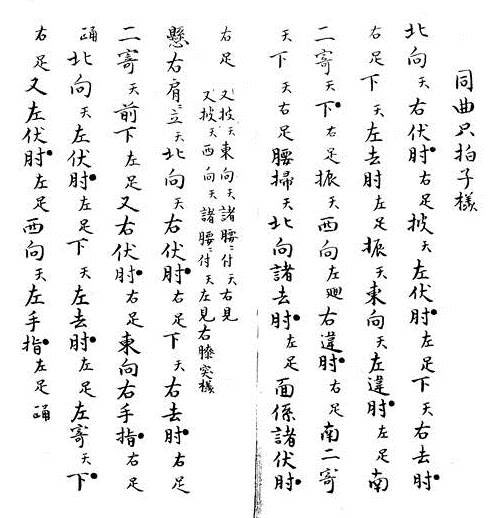 同曲只拍子様
北向天右伏肘右足披天左伏肘左足下天右去肘
右足下天左去肘左足振天東向天左違肘左足南
二寄天下右足振天西向左廻右違肘右足南二寄
天下天右足腰掃天北向諸去肘左足面係諸伏肘
右足 又披天東向天諸腰ニ付天右見
又披天西向天諸腰ニ付天左見右膝突様
懸右肩ニ立天北向天右伏肘右足下天右去肘右足
二寄天前下左足又右伏肘右足東向右手指右足
踊北向天左伏肘左足下天左去肘左足左寄天下
右足又左伏肘左足西向天左手指左足踊